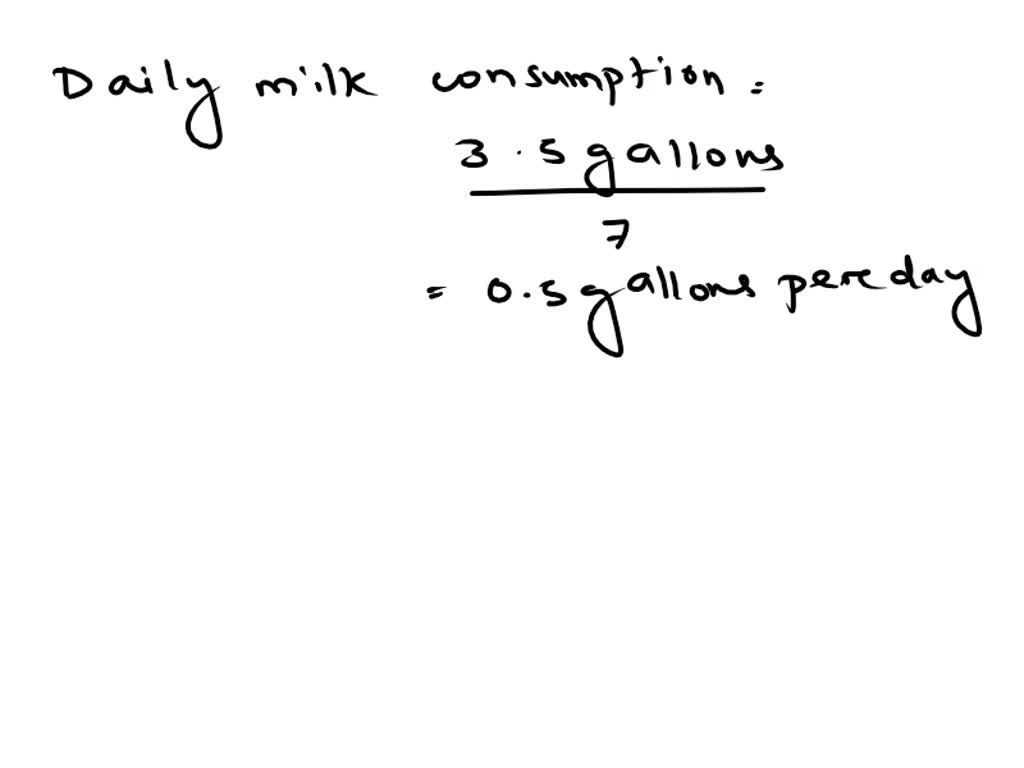 Daily milk consumption =
3.5 gallons
7
= 0.5 gallons pere day